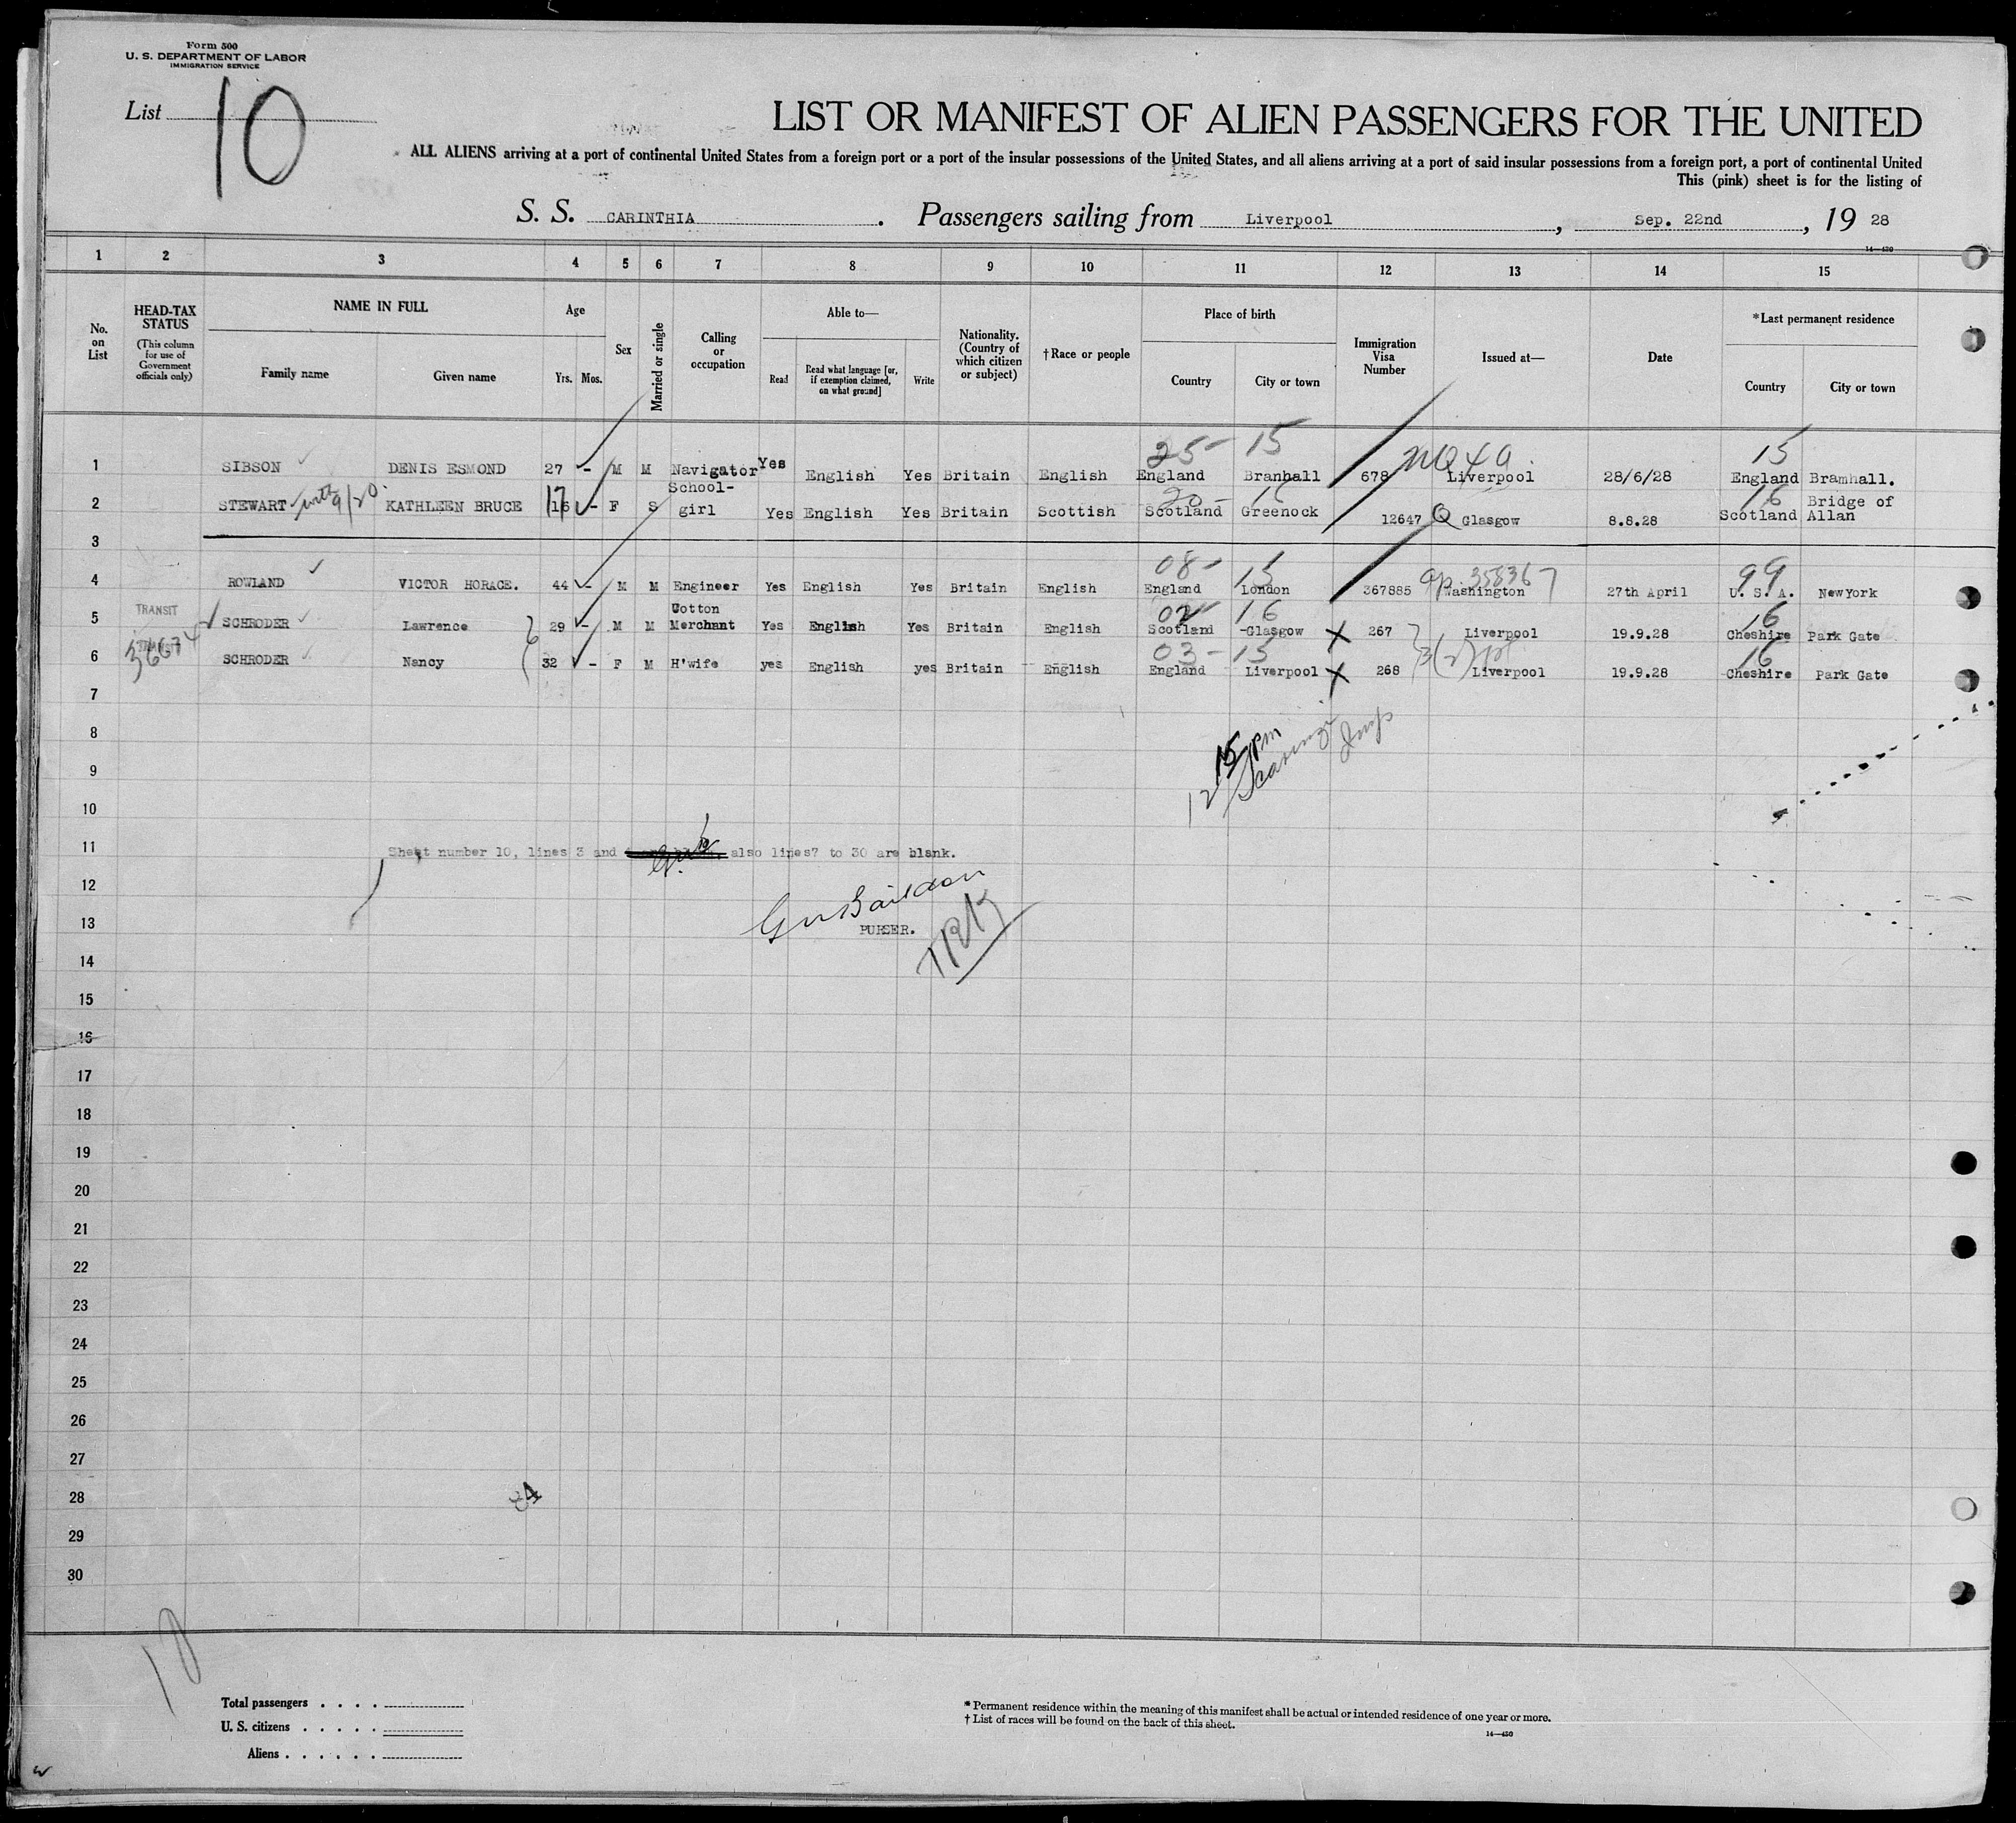 Form 500
U. S. DEPARTMENT OF LABOR
IMMIGRATION SERVICE
List 10
LIST OR MANIFEST OF ALIEN PASSENGERS FOR THE UNITED
ALL ALIENS arriving at a port of continental United States from a foreign port or a port of the insular possessions of the United States, and all aliens arriving at a port of said insular possessions from a foreign port, a port of continental United
This (pink) sheet is for the listing of
S. S. CARINTHIA. Passengers sailing from Liverpool, Sep. 22nd, 19 28
14—430
1 2 3 4 5 6 7 8 9 10 11 12 13 14 15
No. on List
HEAD-TAX STATUS (This column for use of Government officials only)
NAME IN FULL
Family name Given name
Age
Yrs. Mos.
Sex
Married or single
Calling or occupation
Able to—
Read
Read what language [or, if exemption claimed, on what ground]
Write
Nationality. (Country of which citizen or subject)
†Race or people
Place of birth
Country City or town
Immigration Visa Number
Issued at—
Date
*Last permanent residence
Country City or town
25- 15 NQ 4a. 15
1 SIBSON DENIS ESMOND 27 - M M Navigator Yes English Yes Britain English England Branhall 678 Liverpool 28/6/28 England Bramhall.
20- 15 16
2 STEWART with 9/20 KATHLEEN BRUCE 16 17 - F S School-girl Yes English Yes Britain Scottish Scotland Greenock 12647 Q Glasgow 8.8.28 Scotland Bridge of Allan
3
08- 15 358367 99
4 ROWLAND VICTOR HORACE. 44 - M M Engineer Yes English Yes Britain English England London 367885 Washington 27th April U. S. A. NewYork
02 16 16
5 TRANSIT SCHRODER Lawrence 29 - M M Cotton Merchant Yes English Yes Britain English Scotland -Glasgow 267 Liverpool 19.9.28 Cheshire Park Gate
03- 15 16
6 TRANSIT SCHRODER Nancy 32 - F M H'wife yes English yes Britain English England Liverpool 268 Liverpool 19.9.28 Cheshire Park Gate
7
8
9
12 15 pm
10
11 Sheet number 10, lines 3 and also lines7 to 30 are blank.
12
13 PURSER.
14
15
16
17
18
19
20
21
22
23
24
25
26
27
28
29
30
10
Total passengers . . . .
U. S. citizens . . . . .
Aliens . . . . . .
* Permanent residence within the meaning of this manifest shall be actual or intended residence of one year or more.
† List of races will be found on the back of this sheet.
14—430